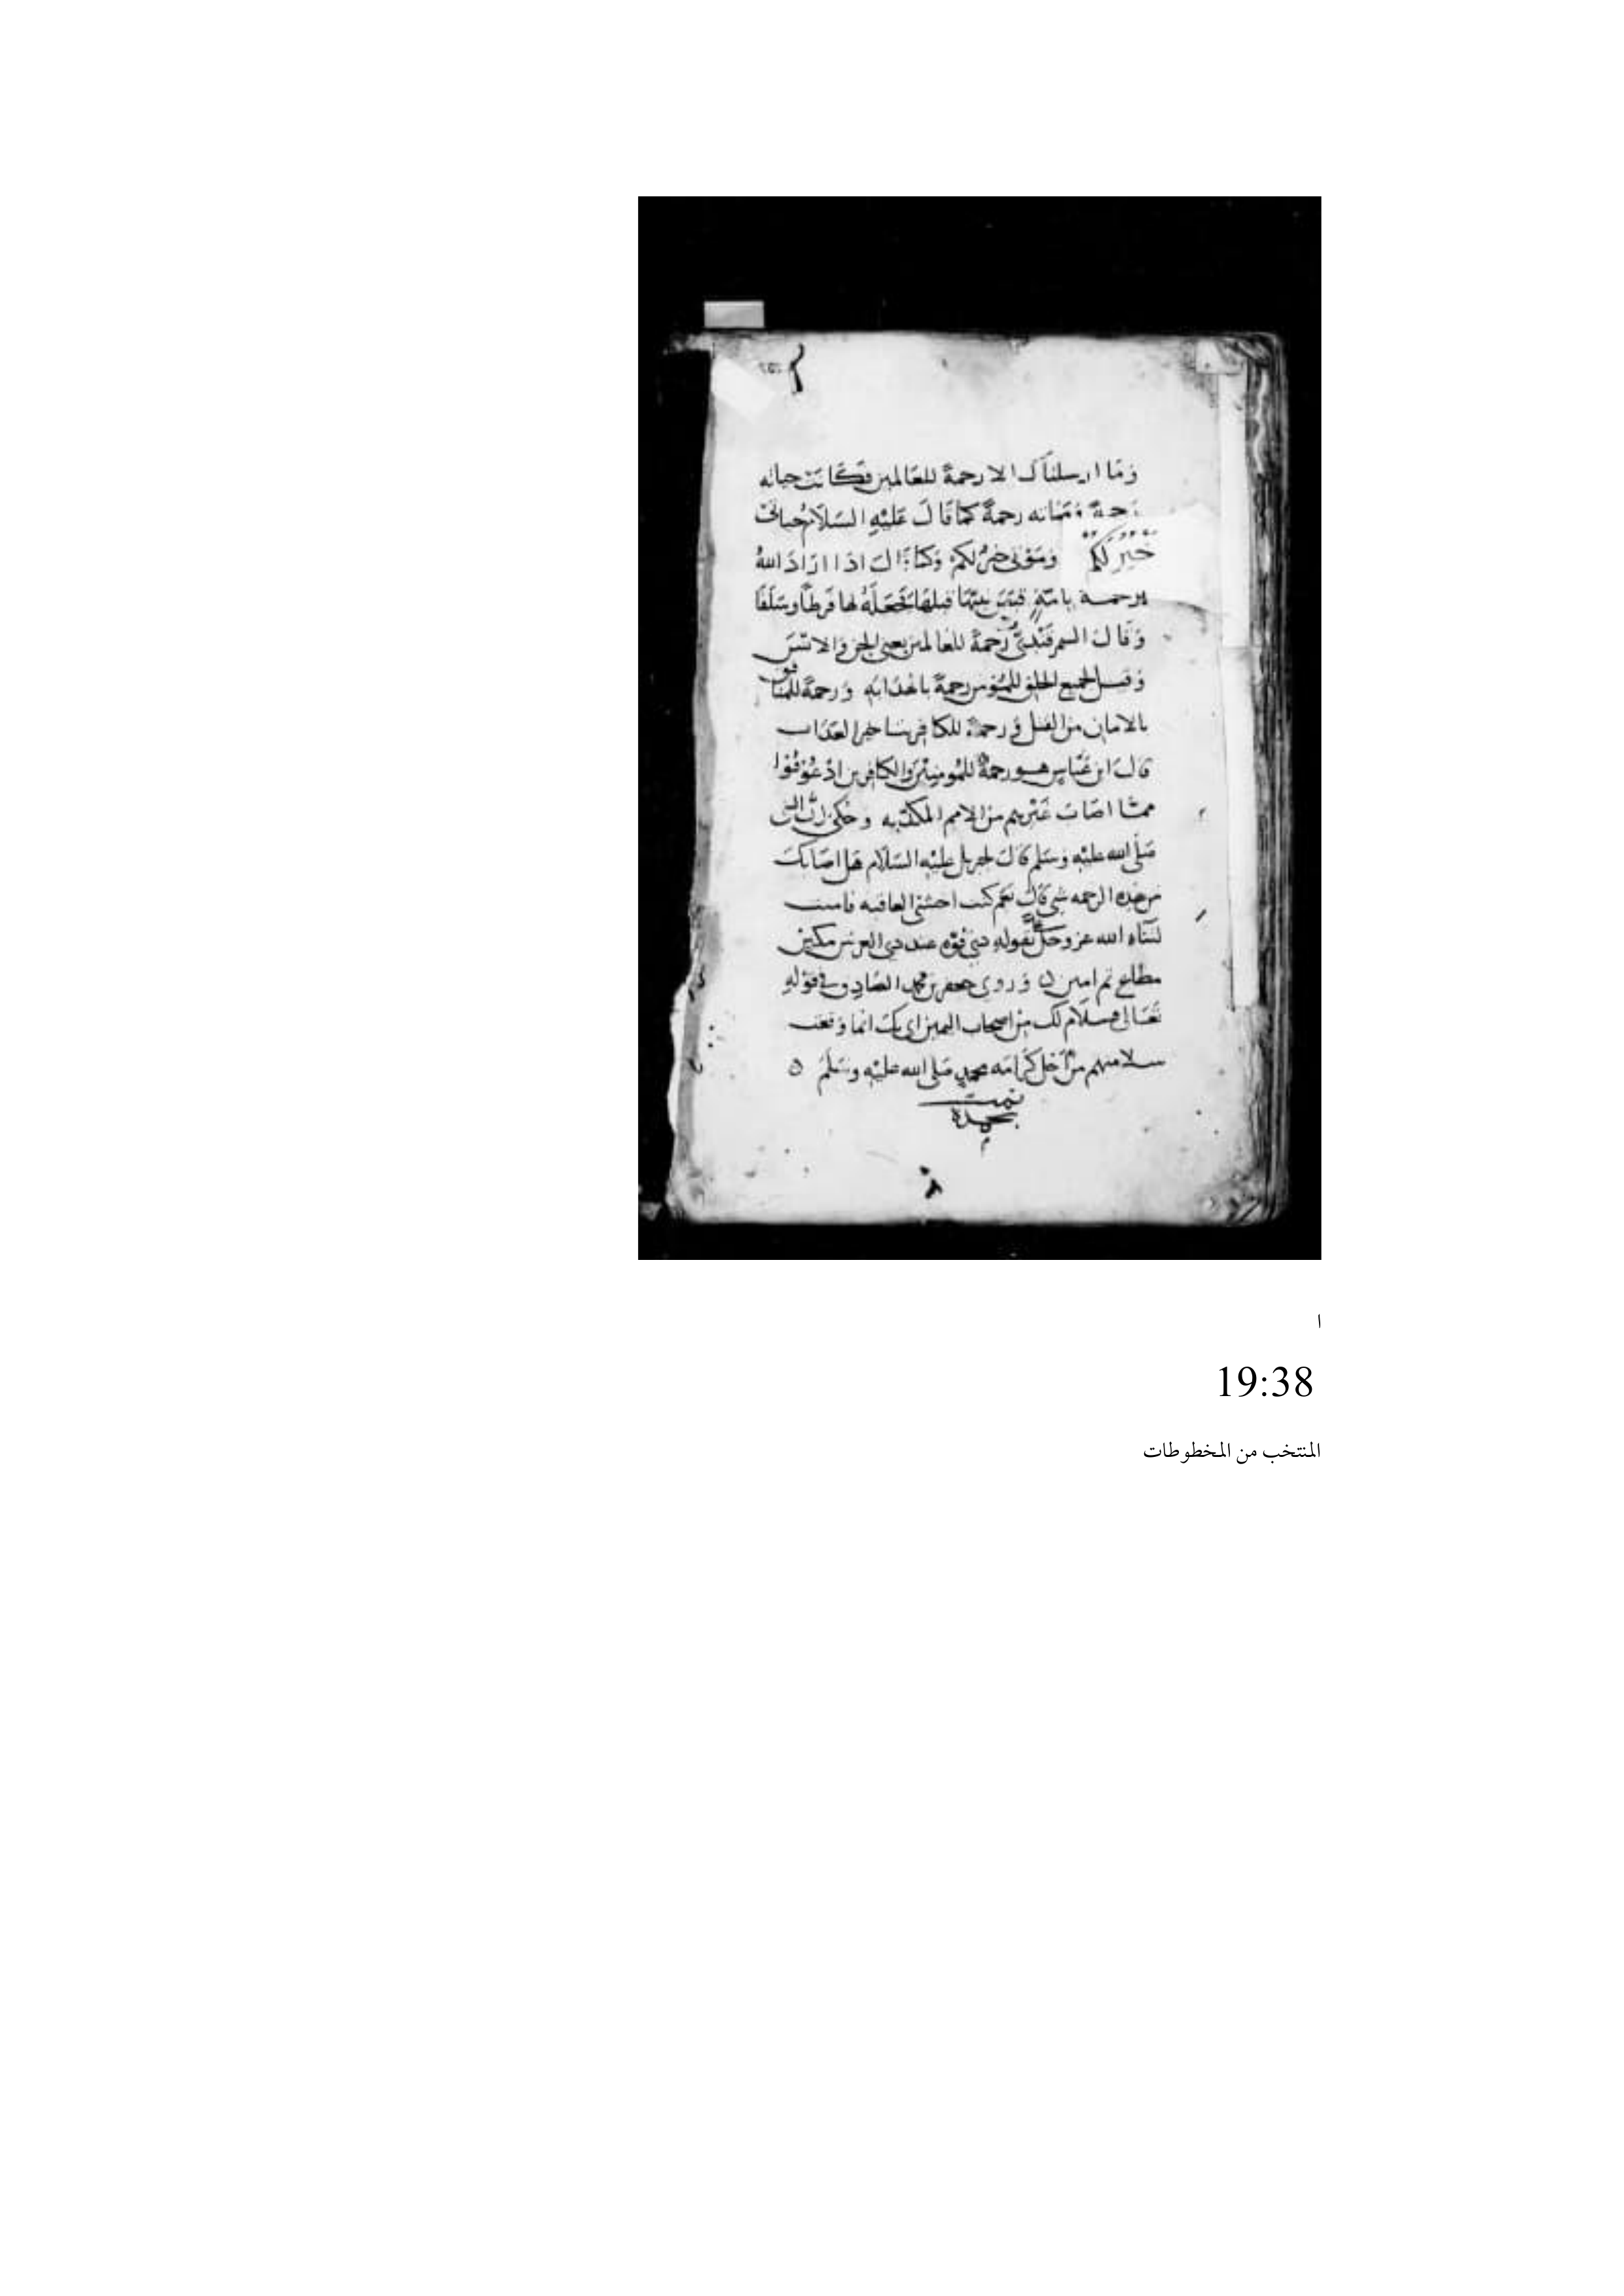 وما ارسلناك الا رحمة للعالمين فكانت حياته
رحمة ومماته رحمة كما قال عليه السلام حياتي
خير لكم وموتي خير لكم وكما قال اذا اراد الله
برحمة بامة قبض نبيها قبلها فجعله لها فرطا وسلفا
وقال السمرقندي رحمة للعالمين يعني الجن والانس
وقيل لجميع الخلق للمؤمن رحمة بالهداية ورحمة للمنافق
بالامان من القتل ورحمة للكافرين بتاخير العذاب
قال ابن عباس هو رحمة للمومنين والكافرين اذ عوفوا
مما اصاب غيرهم من الامم المكذبه وحكي ان النبي
صلى الله عليه وسلم قال لجبريل عليه السلام هل اصابك
من هذه الرحمه شي قال نعم كنت اخشى العاقبه فامنت
لثناء الله عز وجل علي بقوله ذي قوه عند ذي العرش مكين
مطاع ثم امين ه وروي جعفر بن محمد الصادق في قوله
تعالى فسلام لك من اصحاب اليمين اي بك انما وقعت
سلامتهم من اجل كرامه محمد صلى الله عليه وسلم ه
تمت
بحمده
م
ا
19:38
المنتخب من المخطوطات